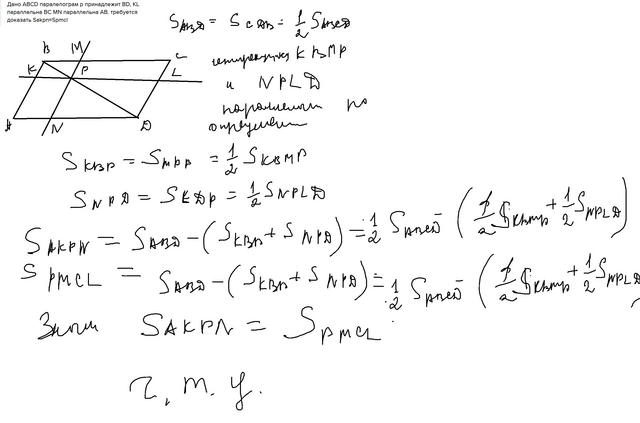 Дано ABCD паралелограм p принадлежит BD, KL
параллельна BC MN параллельна AB. требуется
доказать Sakpn=Spmcl
S ABD = S CDB = 1/2 S ABCD
B M C
K P L
A N D
четырехугк KBMP
и NPLD
параллелогм по
определению
S KBP = S MPB = 1/2 S KBMP
S NPD = S LDP = 1/2 S NPLD
S AKPN = S ABD - (S KBP + S NPD) = 1/2 S ABCD - (1/2 S KBMP + 1/2 S NPLD)
S PMCL = S ABD - (S KBP + S NPD) = 1/2 S ABCD - (1/2 S KBMP + 1/2 S NPLD
Значит S AKPN = S PMCL
Ч. т. д.